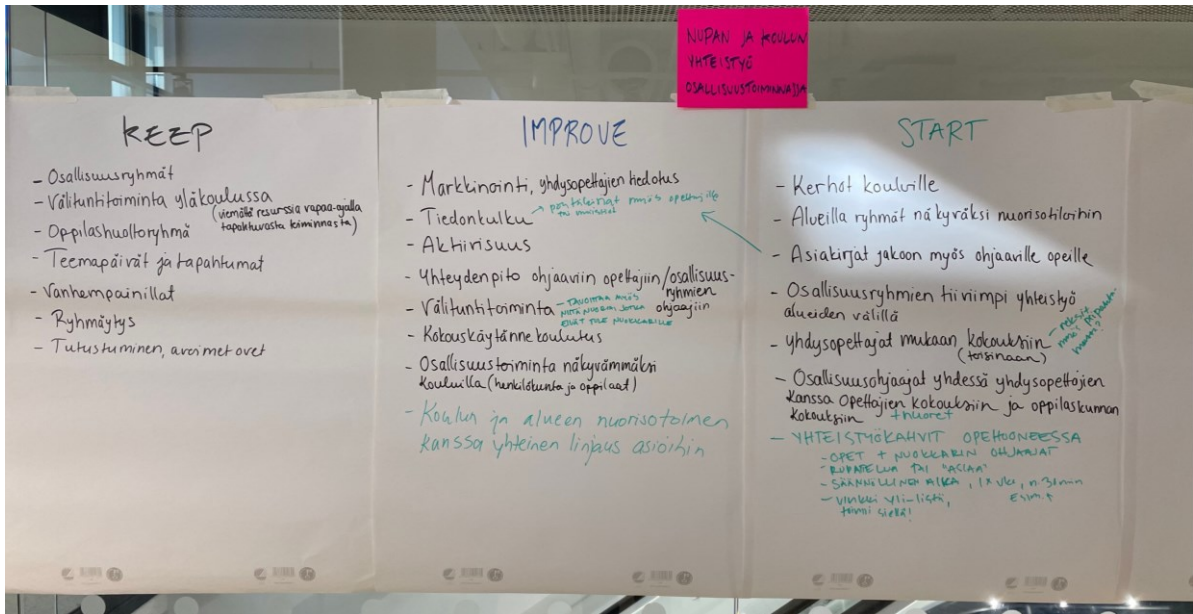 NUPAN JA KOULUN
YHTEISTYÖ
OSALLISUUSTOIMINNASSA
KEEP
- Osallisuusryhmät
- Välituntitoiminta yläkoulussa
(viemättä resurssia vapaa-ajalla
tapahtuvasta toiminnasta)
- Oppilashuoltoryhmä
- Teemapäivät ja tapahtumat
- Vanhempainillat
- Ryhmäytys
- Tutustuminen, avoimet ovet
IMPROVE
- Markkinointi, yhdysopettajien tiedotus
- Tiedonkulku
myös opettajille
tai
- Aktiivisuus
- Yhteydenpito ohjaaviin opettajiin/osallisuus-
ryhmien
ohjaajiin
- Välituntitoiminta
- TAVOITTAA MYÖS
NIITÄ NUORIA JOTKA
EIVÄT TULE NUOKKARILLE
- Kokouskäytänne koulutus
- Osallisuustoiminta näkyvämmäksi
kouluilla (henkilökunta ja oppilaat)
- Koulun ja alueen nuorisotoimen
kanssa yhteinen linjaus asioihin
START
- Kerhot kouluille
- Alueilla ryhmät näkyväksi nuorisotiloihin
- Asiakirjat jakoon myös ohjaaville opeille
- Osallisuusryhmien tiiviimpi yhteistyö
alueiden välillä
- yhdysopettajat mukaan kokouksiin
(toisinaan)
- reksit
myös
- Osallisuusohjaajat yhdessä yhdysopettajien
kanssa opettajien kokouksiin ja oppilaskunnan
kokouksiin + nuoret
- YHTEISTYÖKAHVIT OPEHUONEESSA
- OPET + NUOKKARIN OHJAAJAT
- RUPATELUA TAI "ASIAA"
- SÄÄNNÖLLINEN AIKA, 1x vko, n. 30min
Esim.
- vinkki Yli-Iistä,
toimii siellä!